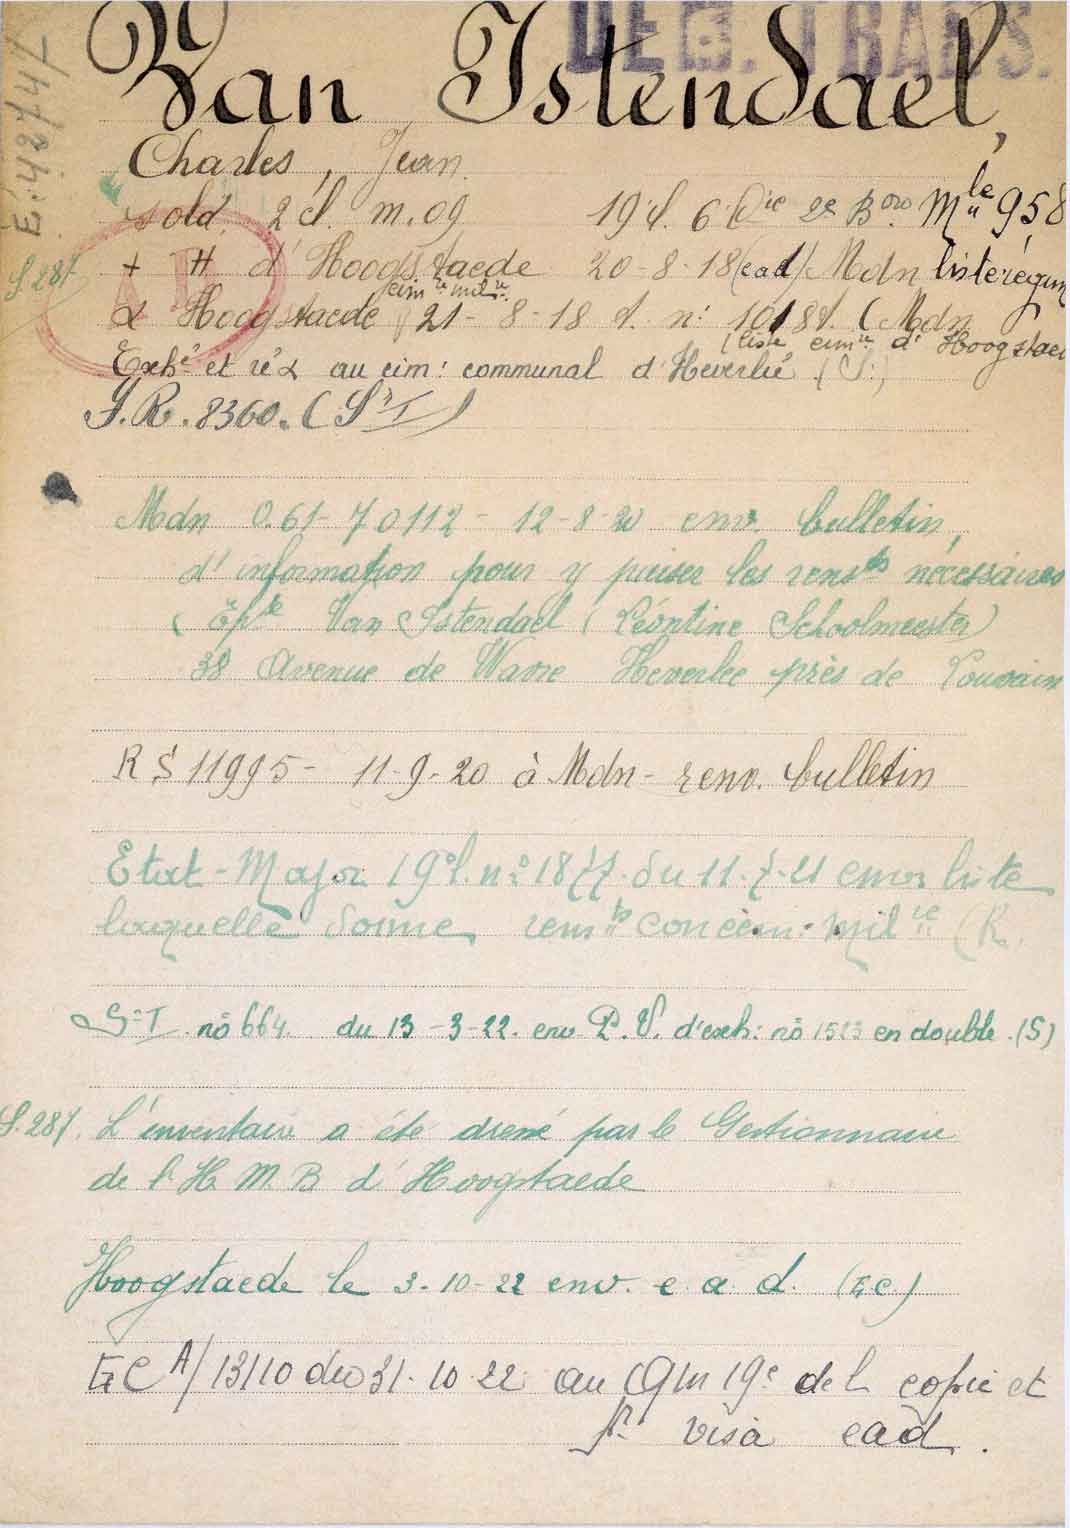 DEM. TRANS.
E: 4274/-
Van Istendael,
Charles, Jean
sold. 2 cl m. 09 19 l. 6 Cie 2e Bon Mle 958
S. 287 + H d'Hoogstaede 20-8-18 (ead) Mdn liste régim
cimre milre
à Hoogstaede 21-8-18 t. n: 10181. (Mdn
(liste cimre d'Hoogstae
Exhé et ré au cim: communal d'Heverlé. (S.)
S.R. 8360. (Sn I)
Mdn 0.61-70112- 12-8-20 env. bulletin,
d'information pour y puiser les rensts nécessaires
(Epse Van Istendael (Léontine Schoolmeester)
38 Avenue de Wavre Heverlee près de Louvain
R S 11995- 11-9-20 à Mdn- renv. bulletin
Etat-Major 19e l. no 1877. du 11-7-21 envoi liste
laquelle donne rensts conc cim: milre (R.
Sn I. no 664. du 13-3-22. env P.V. d'exh: no 1523 en double. (S)
S. 287. L'inventaire a été dressé par le Gestionnaire
de l'H M B d'Hoogstaede
Hoogstaede le 3-10-22 env. e a d. (EC)
EC A/13110 du 31-10-22 au 19e de l copie et
pr visa ead.